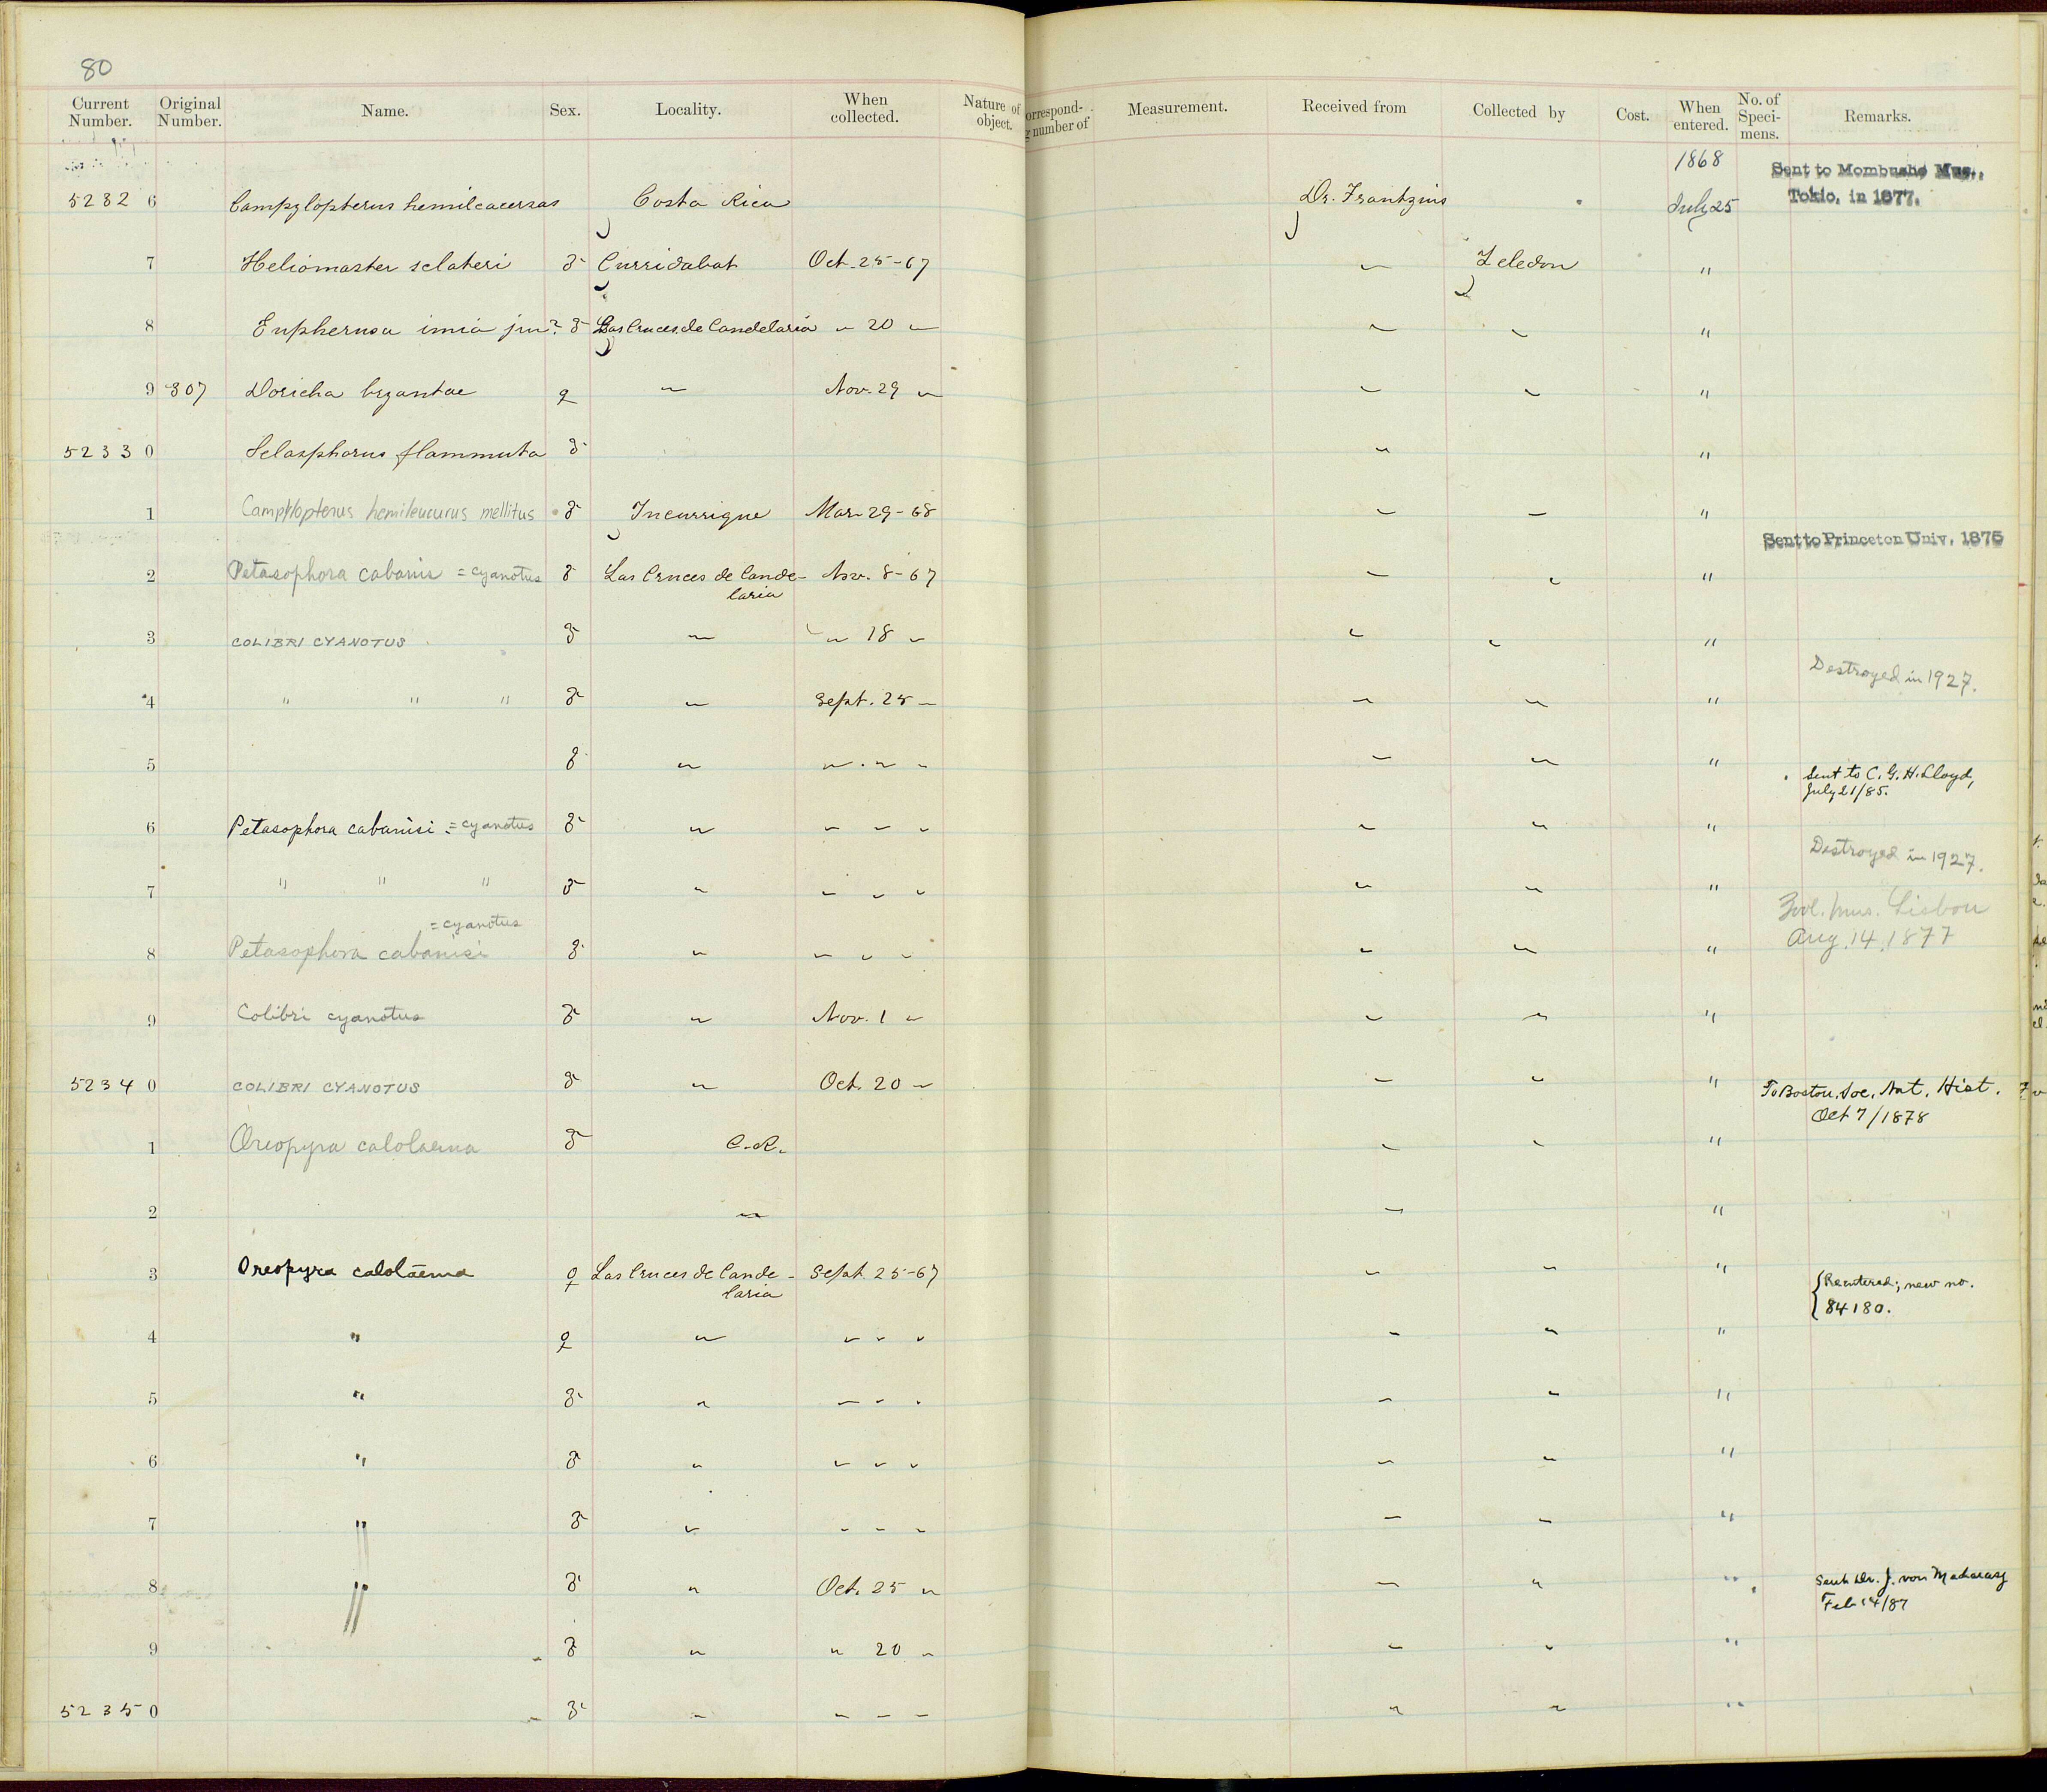 80
Current Number. Original Number. Name. Sex. Locality. When collected. Nature of object. Correspond- g number of Measurement. Received from Collected by Cost. When entered. No. of Speci- mens. Remarks.
1868 Sent to Mombusho Mus.,
5232 6 Campylopterus Costa Rica Dr. Frantzius July 25 Tokio, in 1877.
7 Heliomaster sclateri ♂ Curridabat Oct. 25-67 " Zeledon "
8 Eupherusa imia juv? ♂ Las Cruces de Candelaria " 20 " " " "
9 307 Doricha bryantae ♀ " Nov. 29 " " " "
5233 0 Selasphorus flammula ♂ " "
1 Campylopterus hemileucurus mellitus ♂ Mar 29-68 " " "
Sent to Princeton Univ. 1875
2 Petasophora cabanis = cyanotus ♂ Las Cruces de Cande- Nov. 8-67 " " "
laria
3 COLIBRI CYANOTUS ♂ " " 18 " " " "
Destroyed in 1927.
4 " " " ♂ " Sept. 25 " " " "
5 ♂ " " " " " " " Sent to C. G. H. Lloyd,
July 21/85.
6 Petasophora cabanisi = cyanotus ♂ " " " " " " "
Destroyed in 1927.
7 " " " ♂ " " " " " " "
= cyanotus Zool. Mus. Lisbon
8 Petasophora cabanisi ♂ " " " " " " " Aug. 14, 1877
9 Colibri cyanotus ♂ " Nov. 1 " " " "
5234 0 COLIBRI CYANOTUS ♂ " Oct. 20 " " " " To Boston Soc. Nat. Hist.
Oct 7/1878
1 Oreopyra calolaema ♂ C.R. " " "
2 " " "
3 Oreopyra calolaema ♀ Las Cruces de Cande- Sept. 25-67 " " " Reentered; new no.
laria 84180.
4 " ♀ " " " " " " "
5 " ♂ " " " " " " "
6 " ♂ " " " " " " "
7 " ♂ " " " " " " "
8 " ♂ " Oct. 25 " " " " Sent Dr. J. von Madarasz
Feb 14/87
9 ♂ " " 20 " " " "
5235 0 ♂ " " " " " " "